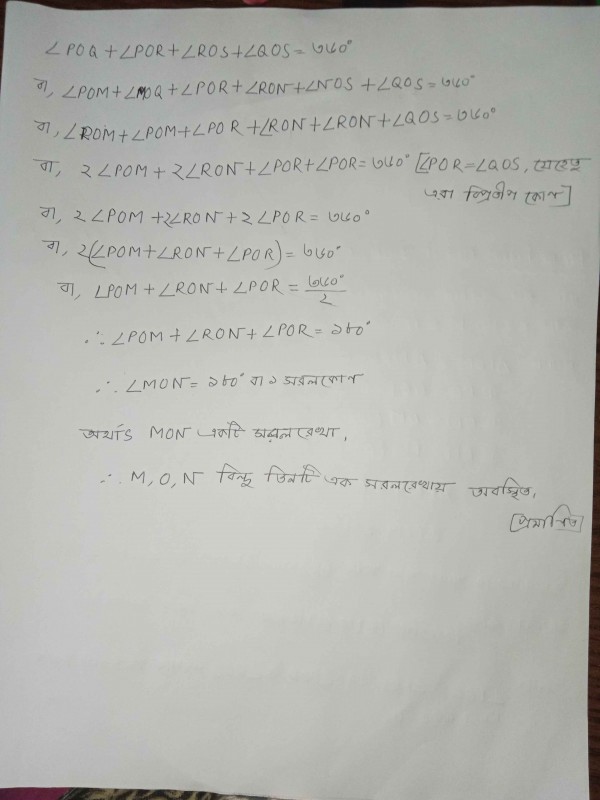 ∠POQ + ∠POR + ∠ROS + ∠QOS = ৩৬০°
বা, ∠POM + ∠MOQ + ∠POR + ∠RON + ∠NOS + ∠QOS = ৩৬০°
বা, ∠POM + ∠POM + ∠POR + ∠RON + ∠RON + ∠QOS = ৩৬০°
বা, ২∠POM + ২∠RON + ∠POR + ∠POR = ৩৬০° [∠POR = ∠QOS, যেহেতু
এরা বিপ্রতীপ কোণ]
বা, ২∠POM + ২∠RON + ২∠POR = ৩৬০°
বা, ২(∠POM + ∠RON + ∠POR) = ৩৬০°
বা, ∠POM + ∠RON + ∠POR = ৩৬০°/২
∴ ∠POM + ∠RON + ∠POR = ১৮০°
∴ ∠MON = ১৮০° বা ১ সরলকোণ
অর্থাৎ MON একটি সরলরেখা,
∴ M, O, N বিন্দু তিনটি এক সরলরেখায় অবস্থিত,
[প্রমাণিত]